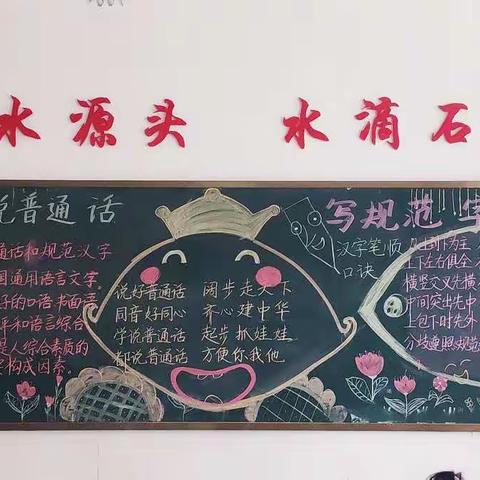 水源头 水滴石
说普通话
通话和规范汉字
国通用语言文字
子的口语书面语
平和语言综合
是人综合素质的
构成因素.
说好普通话 阔步走天下
同音好同心 齐心建中华
学说普通话 起步抓娃娃
都说普通话 方便你我他
写规范字
汉字笔顺
口诀
上下左右俱全
横竖交叉先横
中间突出先中
上包下时先外
分歧遵照规范